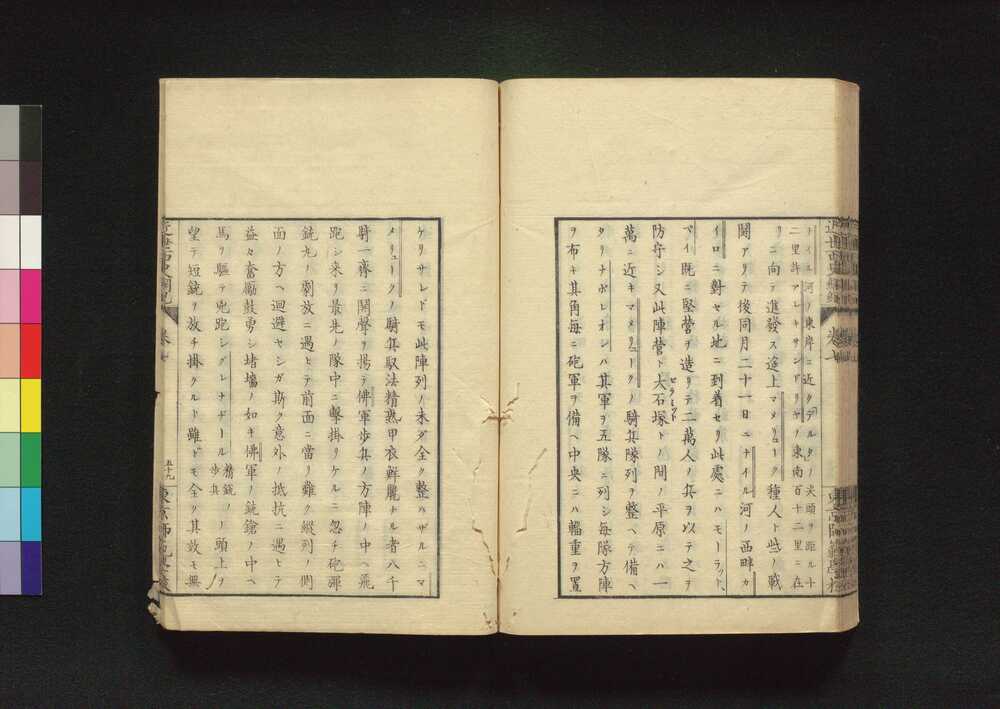 ナイル河ノ東岸ニ近クデルタノ尖頭ヲ距ル十
二里許アレキサンドリヤノ東南百十二里ニ在
リニ向テ進發ス途上マメリューク種人ト些ノ戰
鬪アリテ後同月二十一日ニナイル河ノ西畔カ
イロニ對セル地ニ到着セリ此處ニハモーラット、
ベイ既ニ堅營ヲ造リテ二萬人ノ兵ヲ以テ之ヲ
防守シ又此陣營ト大石塚トノ間ノ平原ニハ一
萬ニ近キマメリュークノ騎兵隊列ヲ整ヘテ備ヘ
タリナポレオンハ其軍ヲ五隊ニ列シ毎隊方陣
ヲ布キ其角毎ニ砲軍ヲ備ヘ中央ニハ輜重ヲ置
ケリサレドモ此陣列ノ未ダ全ク整ハザルニマ
メリュークノ騎兵馭法精熟甲衣鮮麗ナル者八千
騎一齊ニ鬨聲ヲ揚テ佛軍歩兵ノ方陣ノ中ヘ飛
跑シ來リ最先ノ隊中ニ擊掛リケルニ忽チ砲彈
銃丸ノ劇放ニ遇ヒテ前面ニ當リ難ク縱列ノ間
面ノ方ヘ迴避セシガ斯ク意外ノ抵抗ニ遇ヒテ
益々奮勵鼓勇シ堵墻ノ如キ佛軍ノ銃鎗ノ中ヘ
馬ヲ驅テ兜跑シグレナドール精銃歩兵ノ頭上ヲ
望テ短銃ヲ放チ掛クルト雖ドモ全ク其效モ無
五十九